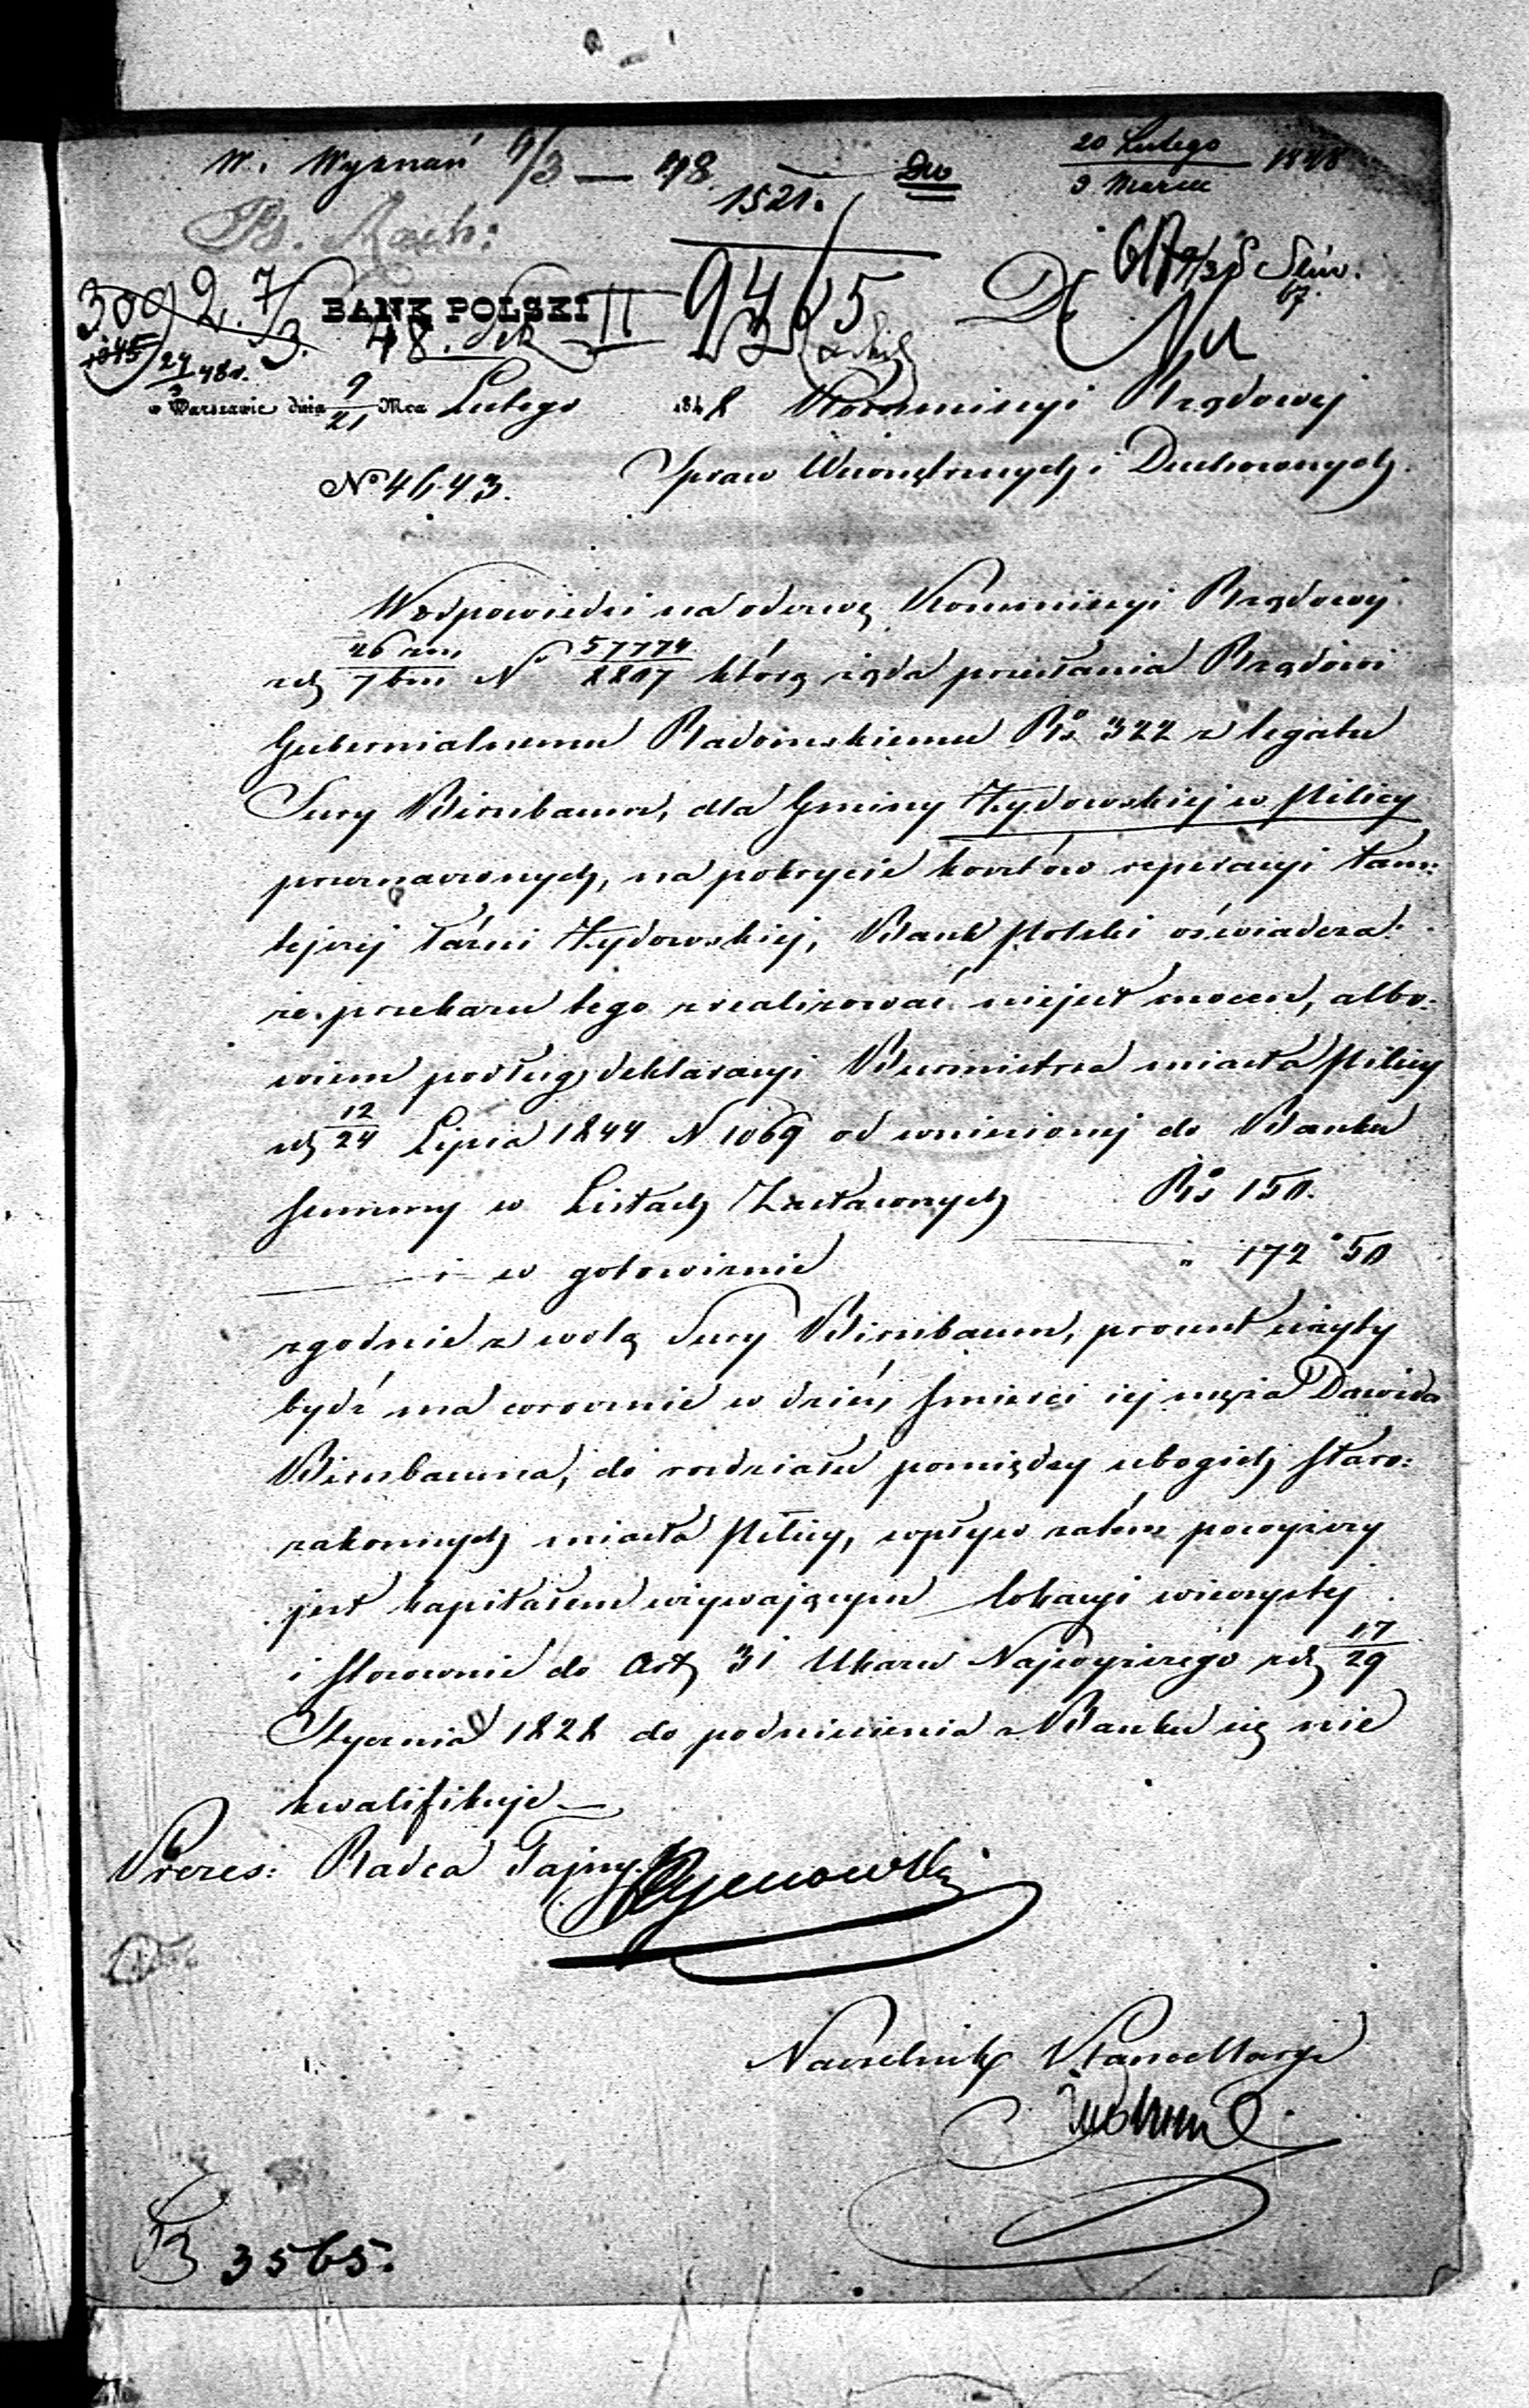 W. Wyznań 9/3 — 48.
1521.
Do
20 Lutego
9 Marca 1848
3092. 7/3. 48.
BANK POLSKI
1045
24/3 48 r.
w Warszawie dnia 9/21 Mca Lutego 1848
Do
Kommissyi Rządowej
Spraw Wewnętrznych i Duchownych.
No 4643.
W odpowiedzi na odezwę Kommissyi Rządowej
z d. 26 am/7 bm No 57774/2817 którą żąda przesłania Rządowi
Gubernialnemu Radomskiemu Rs 322 z legatu
Sury Birnbaum, dla Gminy Żydowskiej w Pilicy
przeznaczonych, na pokrycie kosztów reperacyi tam:
tejszej łaźni Żydowskiej, Bank Polski oświadcza:
że przekazu tego zrealizować niejest mocen, albo:
wiem podług deklaracyi Burmistrza miasta Pilicy
z d. 12/24 Lipca 1844 N 1069 od wniesionej do Banku
summy w Listach Zastawnych Rs 150.
— i — w gotowiznie " 172 " 50
zgodnie z wolą Sury Birnbaum, procent użyty
bydź ma corocznie w dzień śmierci iej męża Dawida
Birnbauma, do rozdziału pomiędzy ubogich staro:
zakonnych miasta Pilicy, wpływ zatém powyższy
jest kapitałem używającym lokacyi wieczystej
i stosownie do Art 31 Ukazu Najwyższego z d. 17/29
Stycznia 1828 do podniesienia z Banku się nie
kwalifikuje —
Prezes: Radca Tajny
Naczelnik Kancellaryi
B 3565.